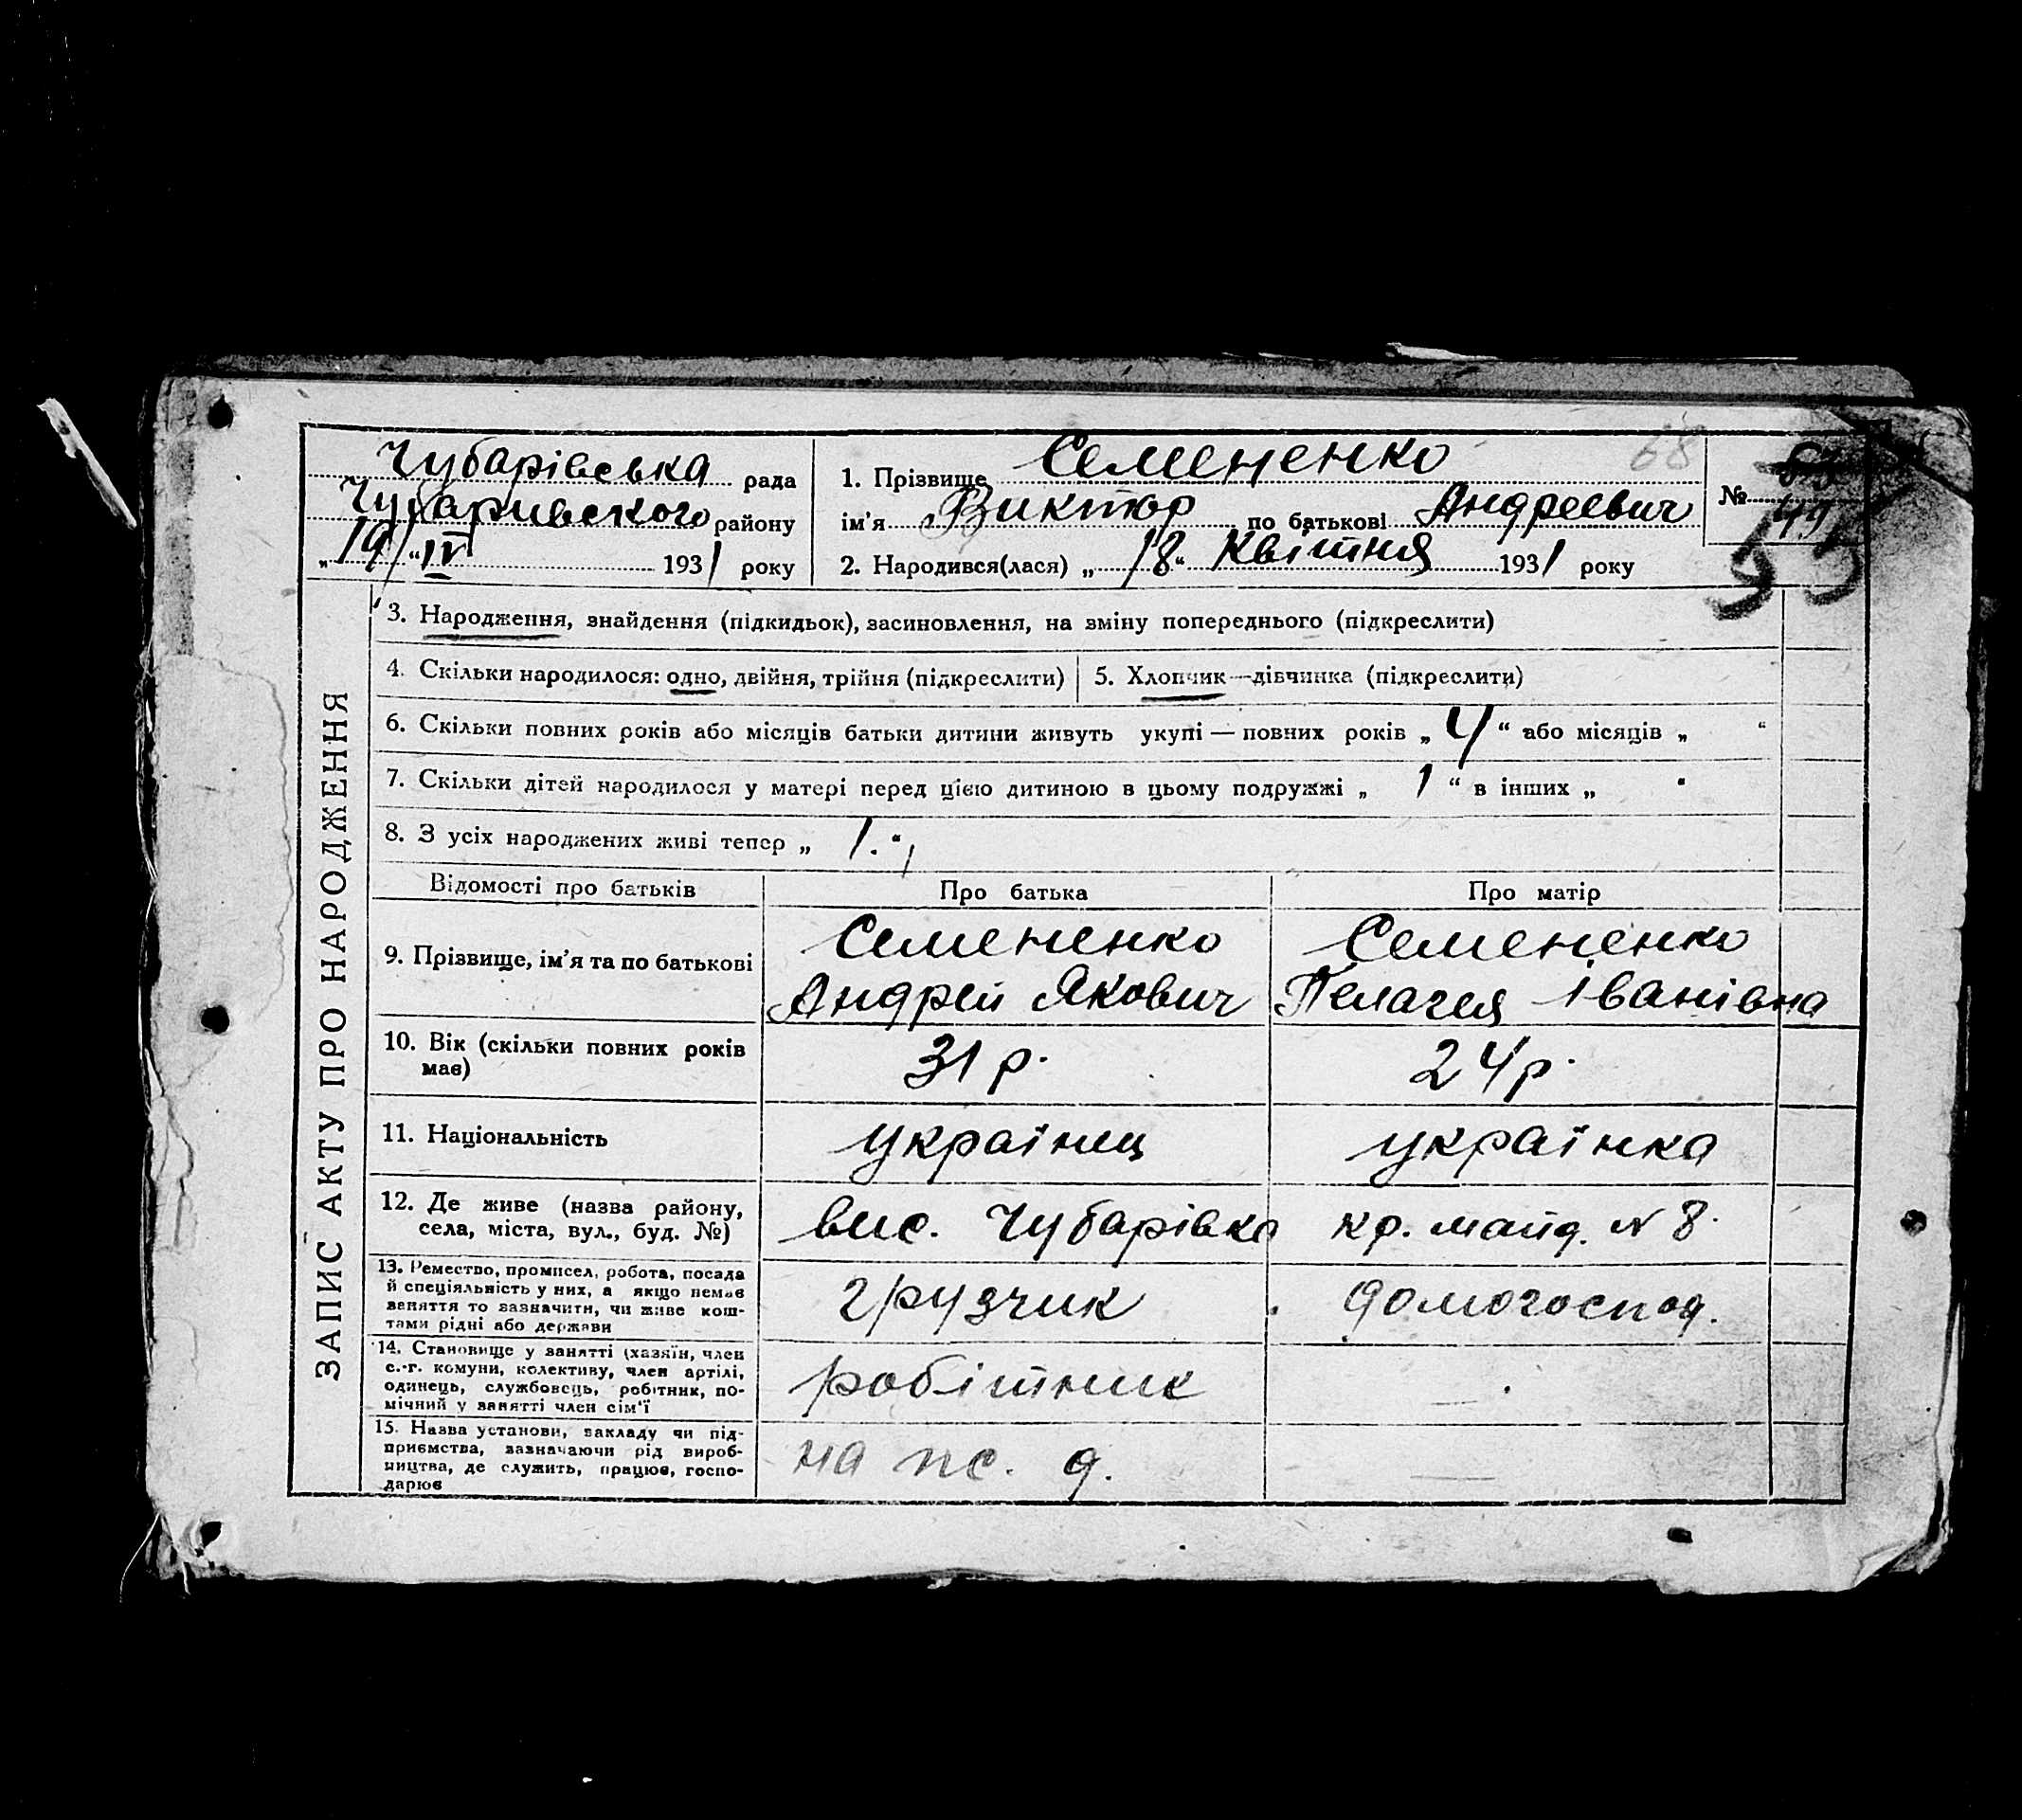 ЗАПИС АКТУ ПРО НАРОДЖЕННЯ
Чубарівська рада
Чубаривского району
„19“ IV 1931 року
1. Прізвище Семененко
68
ім'я Виктор по батькові Андреевич
2. Народився(лася) „18“ Квітня 1931 року
№ 63
49
53
3. Народження, знайдення (підкидьок), засиновлення, на зміну попереднього (підкреслити)
4. Скільки народилося: одно, двійня, трійня (підкреслити)
5. Хлопчик—дівчинка (підкреслити)
6. Скільки повних років або місяців батьки дитини живуть укупі — повних років „ 4 “ або місяців „ “
7. Скільки дітей народилося у матері перед цією дитиною в цьому подружжі „ 1 “ в інших „ “
8. З усіх народжених живі тепер „ 1. “
Відомості про батьків
Про батька
Про матір
9. Прізвище, ім'я та по батькові
Семененко
Андрей Якович
Семененко
Пелагея Іванівна
10. Вік (скільки повних років
має)
31 р.
24 р.
11. Національність
українец
українка
12. Де живе (назва району,
села, міста, вул., буд. №)
вис. Чубарівка кр. майд. № 8.
13. Ремество, промисел, робота, посада
й спеціяльність у них, а якщо немає
заняття то зазначити, чи живе кош-
тами рідні або держави
грузчик
домогоспод.
14. Становище у занятті (хазяїн, член
с.-г. комуни, колективу, член артілі,
одинець, службовець, робітник, по-
мічний у занятті член сім'ї
робітник
—
15. Назва установи, закладу чи під-
приємства, зазначаючи рід вироб-
ництва, де служить, працює, госпо-
дарює
на пс. д.
—